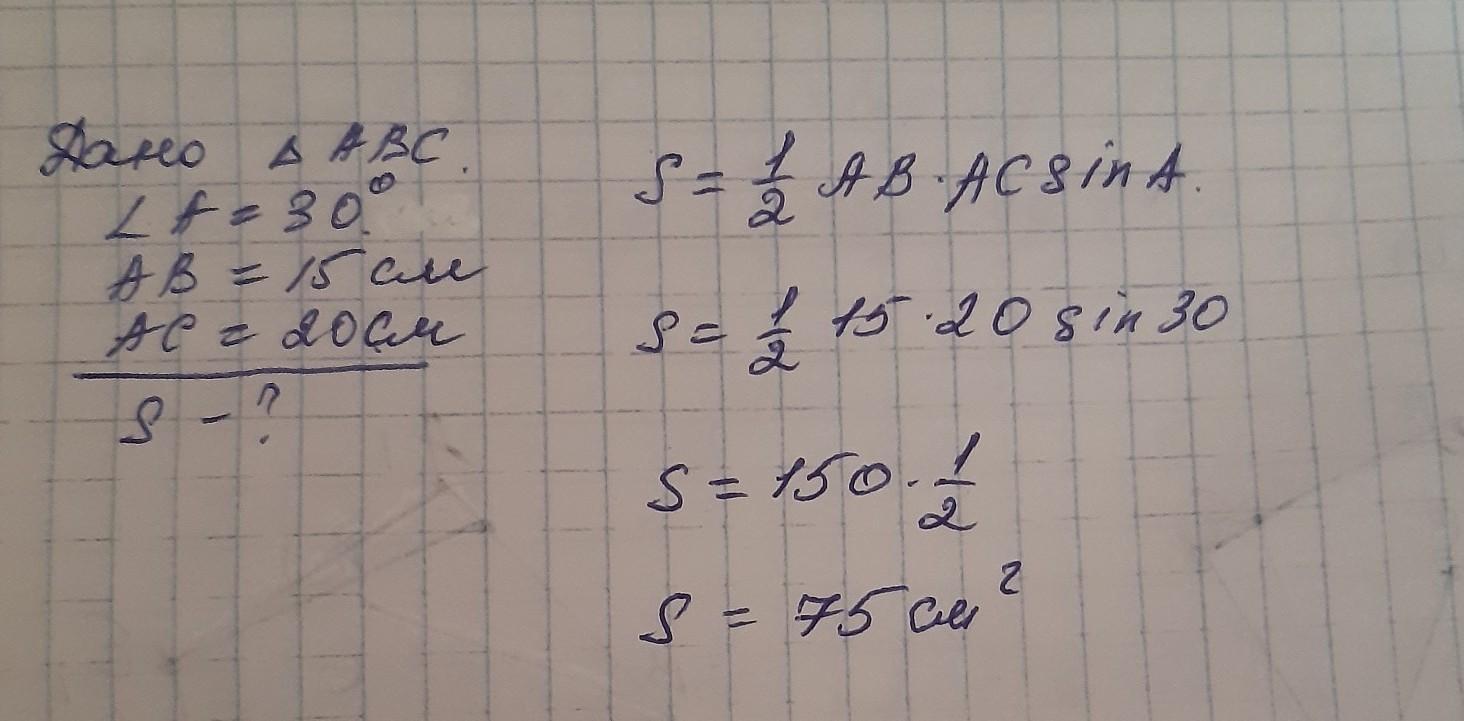 Дано △ ABC.
∠ A = 30°
AB = 15 см
AC = 20 см
S - ?
S = 1/2 AB · AC sin A.
S = 1/2 15 · 20 sin 30
S = 150 · 1/2
S = 75 см²